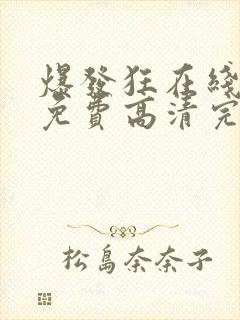 爆發狂在綫
免費高清完
松島奈奈子